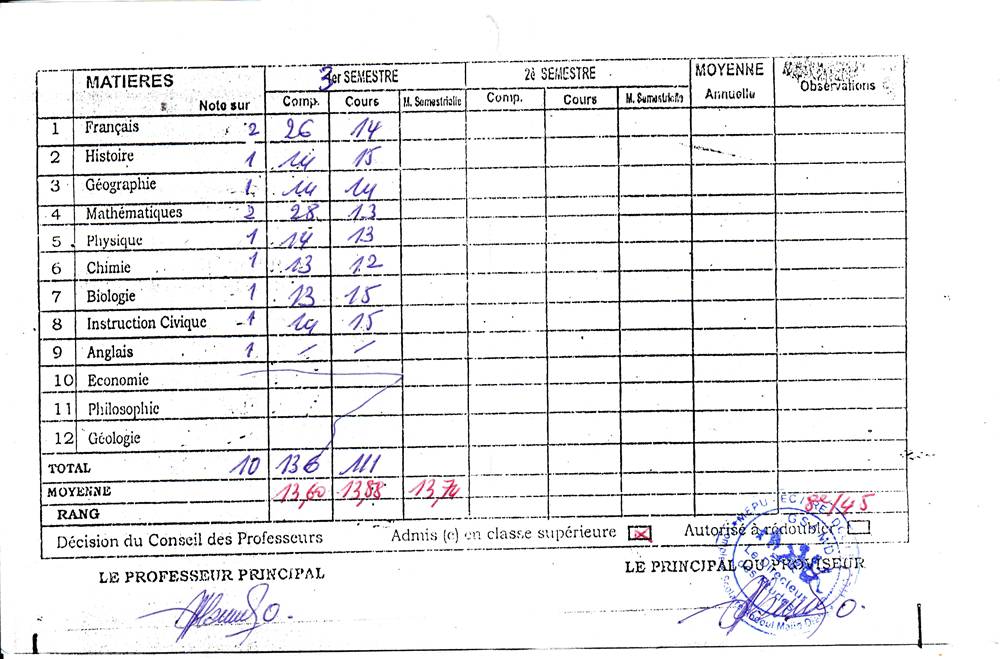 MATIERES 3er SEMESTRE 2è SEMESTRE MOYENNE Annuelle Observations
Note sur Comp. Cours M. Semestrielle Comp. Cours M. Semestrielle
1 Français 2 26 14
2 Histoire 1 14 15
3 Géographie 1 14 14
4 Mathématiques 2 28 13
5 Physique 1 14 13
6 Chimie 1 13 12
7 Biologie 1 13 15
8 Instruction Civique 1 14 15
9 Anglais 1 - -
10 Economie
11 Philosophie
12 Géologie
TOTAL 10 136 111
MOYENNE 13,60 13,88 13,74
RANG /45
Décision du Conseil des Professeurs Admis (e) en classe supérieure Autorisé à rédoubler
LE PROFESSEUR PRINCIPAL LE PRINCIPAL OU PROVISEUR
Le Directeur
des Etudes